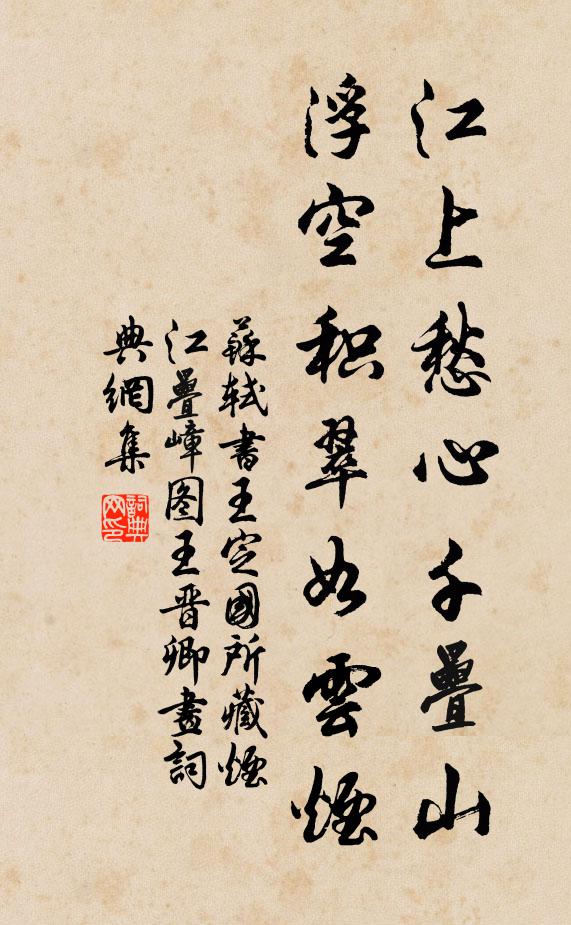 江上愁心千疊山
浮空积翠如雲煙
蘇軾書王定國所藏煙
江疊嶂图王晋卿畫詞
典網集
詞典
网印